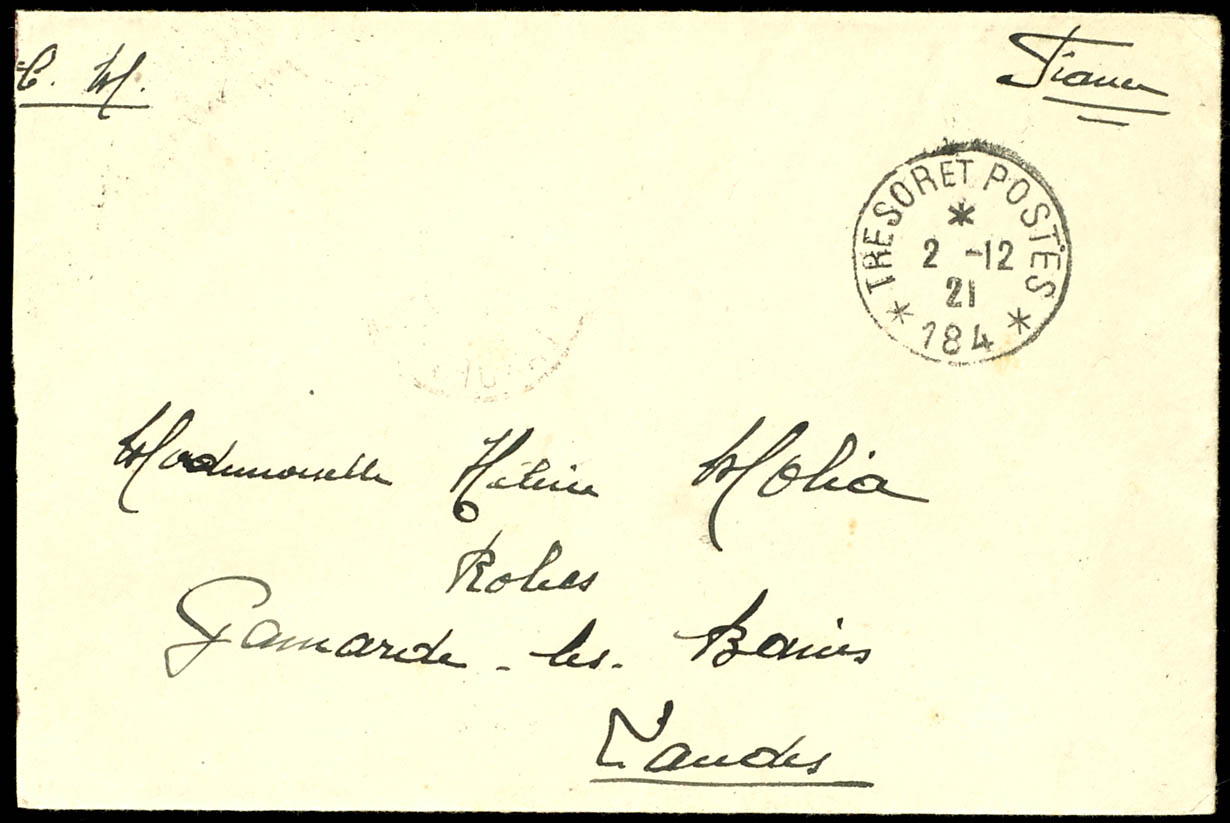 C. M.
Franca
TRESOR ET POSTES
2 -12
21
184
Mademoiselle Hélène Molia
Robes
Gamarde-les-Bains
Landes